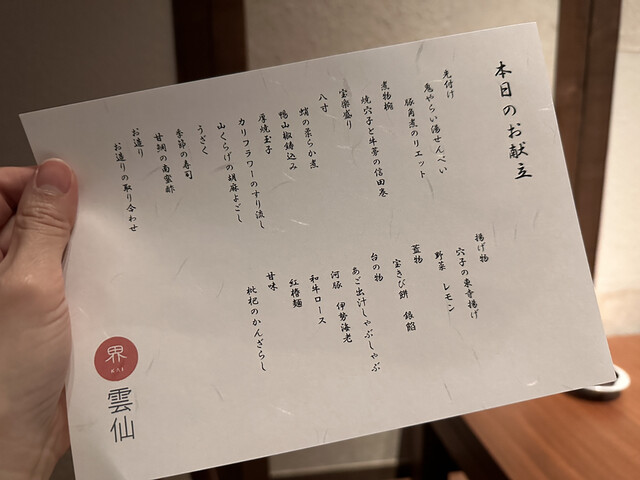 本日のお献立
先付け
鬼やらい湯せんぺい
豚角煮のリエット
煮物椀
焼穴子と牛蒡の信田巻
宝楽盛り
八寸
蛸の柔らか煮
鴨山椒鋳込み
厚焼玉子
カリフラワーのすり流し
山くらげの胡麻よごし
うざく
季節の寿司
甘鯛の南蛮酢
お造り
お造りの取り合わせ
揚げ物
穴子の東寺揚げ
野菜 レモン
蓋物
宝きび餅 銀餡
台の物
あご出汁しゃぶしゃぶ
河豚 伊勢海老
和牛ロース
紅椿麺
甘味
枇杷のかんざらし
界
KAI
雲仙